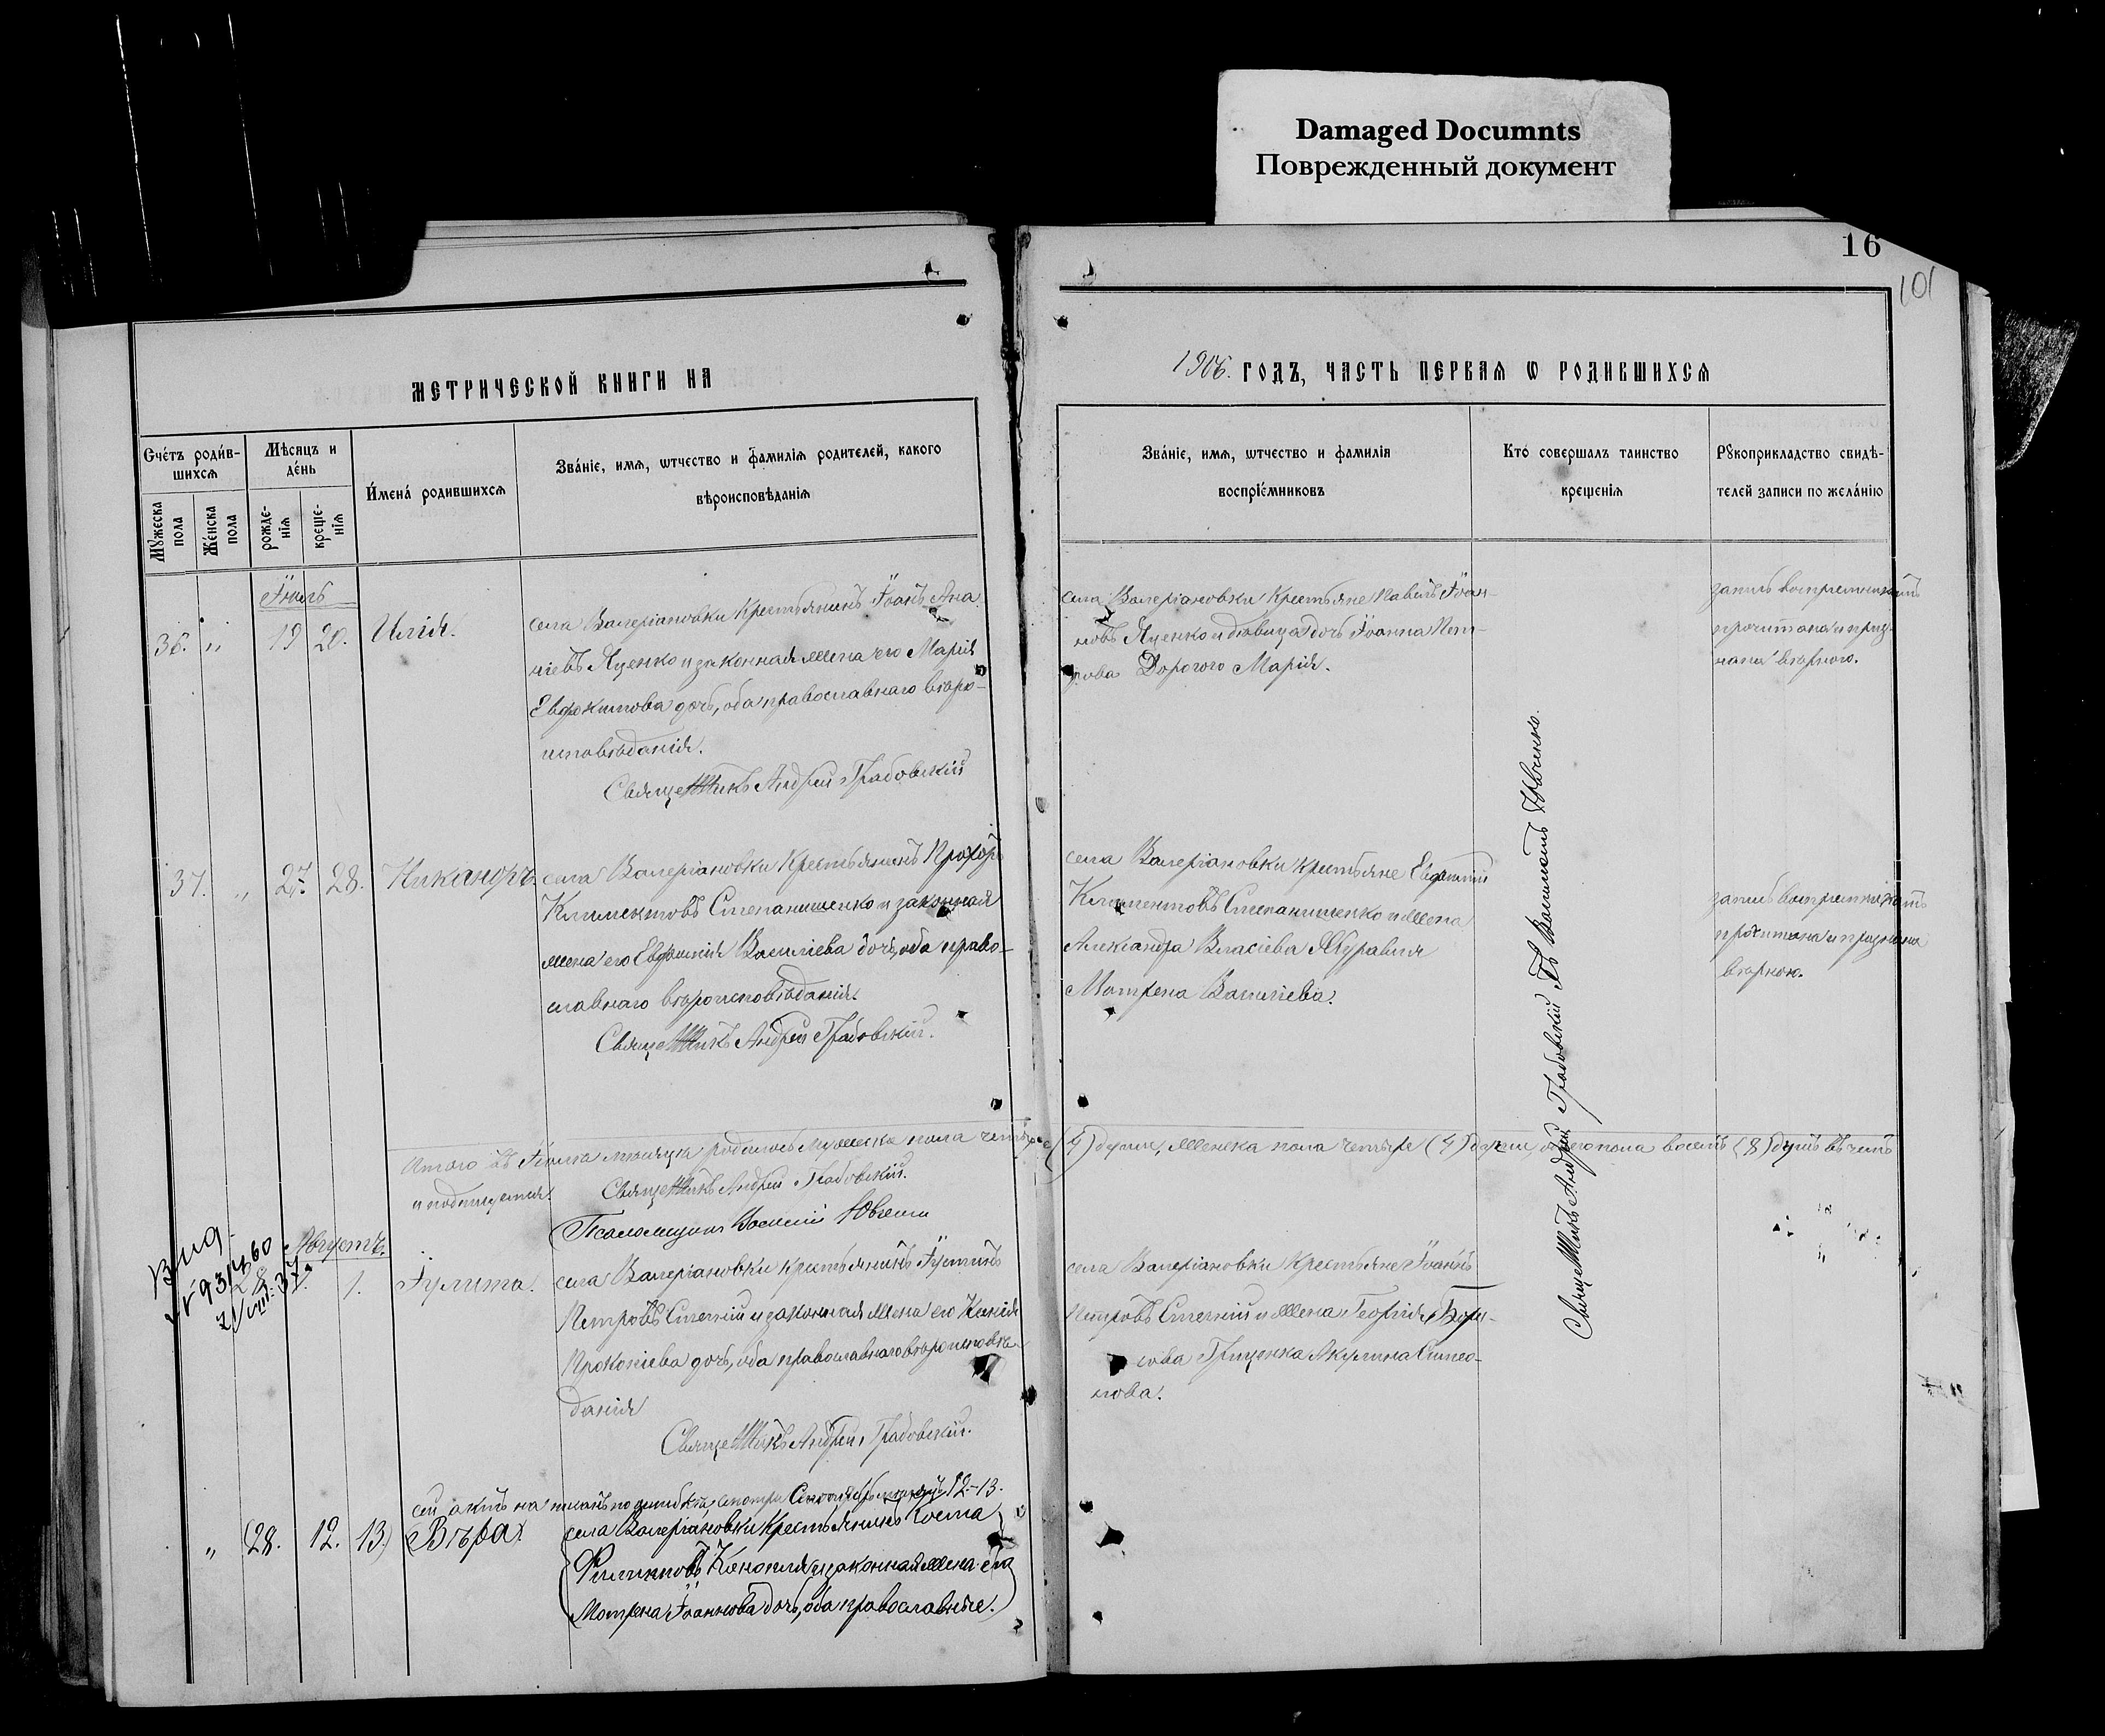 Damaged Documnts
Поврежденный документ
16
101
МЕТРИЧЕСКОЙ КНИГИ НА
1906. ГОДЪ, ЧАСТЬ ПЕРВАЯ Ѡ РОДИВШИХСЯ
Счетъ родив-
шихся
Мужеска пола
Женска пола
Мѣсяцъ и
день
рожде-
нія
креще-
нія
Имена родившихся
Званіе, имя, ѡтчество и фамилія родителей, какого
вѣроисповѣданія
Званіе, имя, ѡтчество и фамилія
воспріемниковъ
Кто совершалъ таинство
крещенія
Рукоприкладство свидѣ-
телей записи по желанію
Іюль
36. " 19 20. Илія.
села Валеріановки крестьянинъ Іоанъ Ана
ніевъ Яценко и законная жена его Марія
Евдокимова дочь, оба православнаго вѣро-
исповѣданія.
Священникъ Андрей Грабовскій
села Валеріановки крестьяне Павелъ Іоан-
новъ Яценко и дѣвица дочь Іоанна Пет-
рова Дорогого Марія.
запись воспріемникамъ
прочитана и приз-
нана вѣрною.
37. " 27. 28. Никаноръ.
села Валеріановки крестьянинъ Прохоръ
Климентовъ Степанишенко и законная
жена его Евфимія Василіева дочь, оба право-
славнаго вѣроисповѣданія.
Священникъ Андрей Грабовскій.
села Валеріановки крестьяне Евфимій
Климентовъ Степанишенко и жена
Александра Власіева Журавля
Матрена Василіева.
запись воспріемникамъ
прочитана и признана
вѣрною.
Священникъ Андрей Грабовскій съ Псаломъ Ювченко.
Итого въ Іюлѣ мѣсяцѣ родилось мужеска пола четыре (4) души, женска пола четыре (4) души, обоего пола восемь (8) душъ въ чемъ
и подписуемся:
Священникъ Андрей Грабовскій.
Псаломщикъ Василій Ювченко
Августъ.
1. Іулита.
села Валеріановки крестьянинъ Іустинъ
Петровъ Степній и законная жена его Ксенія
Прокопіева дочь, оба православнаго вѣроисповѣ-
данія
Священникъ Андрей Грабовскій.
села Валеріановки крестьяне Іоаннъ
Петровъ Степній и жена Георгія Бори-
сова Гриценка Акулина Симео-
нова.
сей актъ написанъ по ошибкѣ, смотри 12-13.
" (28. 12. 13) (Вѣра.)
села Валеріановки крестьянинъ
Филипповъ и законная жена его
Матрена Іоаннова дочь, оба православные.)